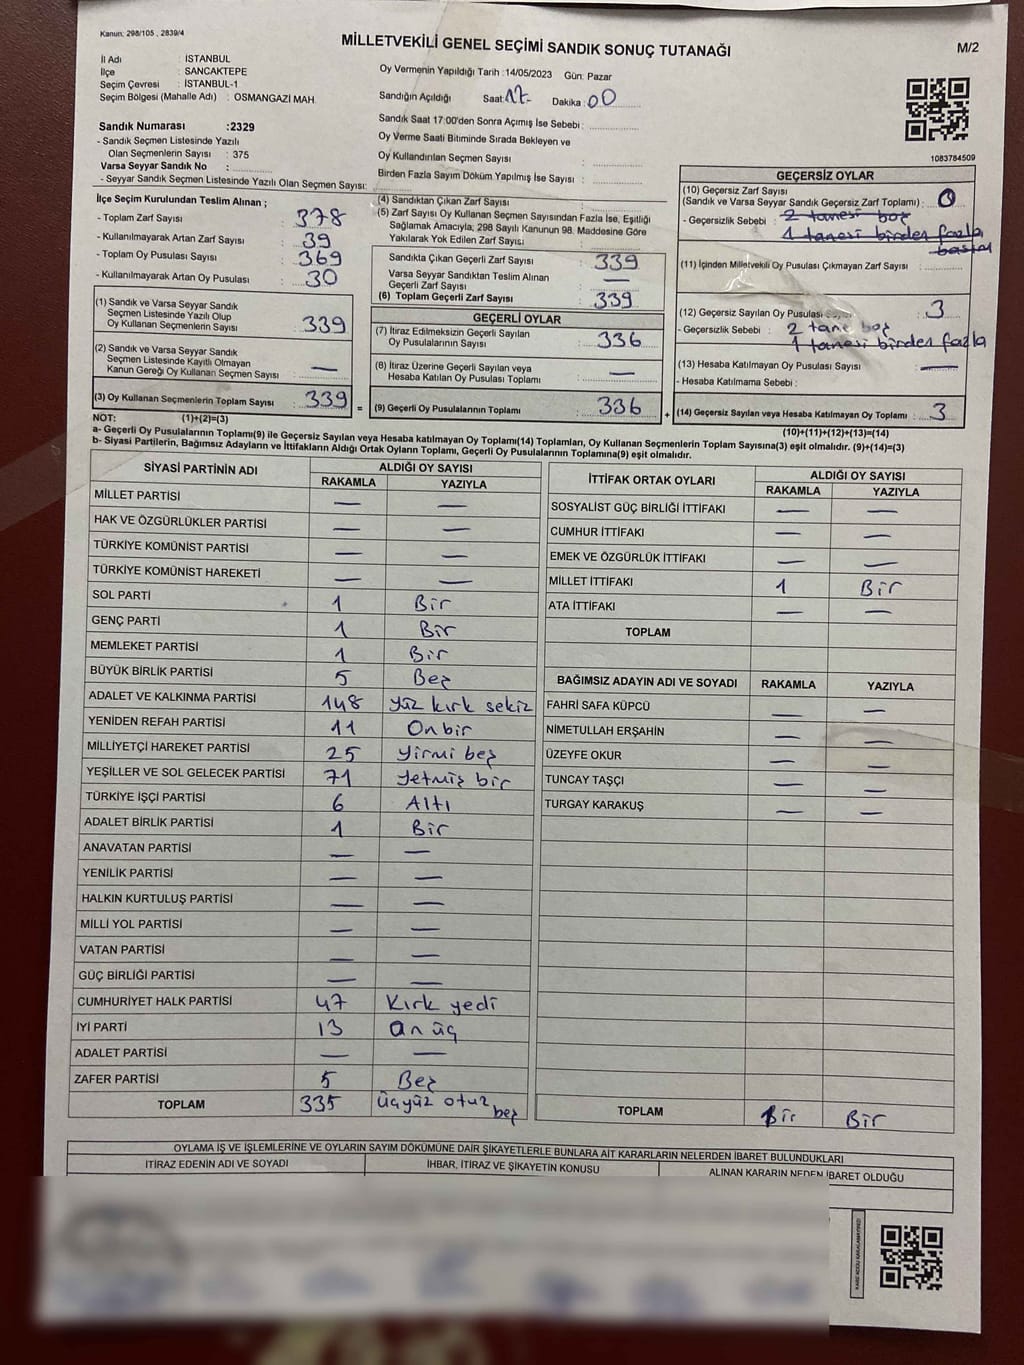 Kanun: 298/105 , 2839/4
MİLLETVEKİLİ GENEL SEÇİMİ SANDIK SONUÇ TUTANAĞI
M/2
İl Adı : İSTANBUL
İlçe : SANCAKTEPE
Seçim Çevresi : İSTANBUL-1
Seçim Bölgesi (Mahalle Adı) : OSMANGAZİ MAH.
Sandık Numarası :2329
- Sandık Seçmen Listesinde Yazılı
Olan Seçmenlerin Sayısı : 375
Varsa Seyyar Sandık No :
- Seyyar Sandık Seçmen Listesinde Yazılı Olan Seçmen Sayısı:
Oy Vermenin Yapıldığı Tarih :14/05/2023 Gün: Pazar
Sandığın Açıldığı Saat: 17 Dakika : 00
Sandık Saat 17:00'den Sonra Açımış İse Sebebi :
Oy Verme Saati Bitiminde Sırada Bekleyen ve
Oy Kullandırılan Seçmen Sayısı :
Birden Fazla Sayım Döküm Yapılmış İse Sayısı :
1083784509
İlçe Seçim Kurulundan Teslim Alınan ;
- Toplam Zarf Sayısı : 378
- Kullanılmayarak Artan Zarf Sayısı : 39
- Toplam Oy Pusulası Sayısı : 369
- Kullanılmayarak Artan Oy Pusulası : 30
(1) Sandık ve Varsa Seyyar Sandık
Seçmen Listesinde Yazılı Olup
Oy Kullanan Seçmenlerin Sayısı : 339
(2) Sandık ve Varsa Seyyar Sandık
Seçmen Listesinde Kayıtlı Olmayan
Kanun Gereği Oy Kullanan Seçmen Sayısı : —
(3) Oy Kullanan Seçmenlerin Toplam Sayısı : 339 =
(4) Sandıktan Çıkan Zarf Sayısı :
(5) Zarf Sayısı Oy Kullanan Seçmen Sayısından Fazla İse, Eşitliği
Sağlamak Amacıyla, 298 Sayılı Kanunun 98. Maddesine Göre
Yakılarak Yok Edilen Zarf Sayısı :
Sandıkta Çıkan Geçerli Zarf Sayısı : 339
Varsa Seyyar Sandıktan Teslim Alınan
Geçerli Zarf Sayısı : —
(6) Toplam Geçerli Zarf Sayısı : 339
GEÇERLİ OYLAR
(7) İtiraz Edilmeksizin Geçerli Sayılan
Oy Pusulalarının Sayısı : 336
(8) İtiraz Üzerine Geçerli Sayılan veya
Hesaba Katılan Oy Pusulası Toplamı : —
(9) Geçerli Oy Pusulalarının Toplamı : 336 +
GEÇERSİZ OYLAR
(10) Geçersiz Zarf Sayısı
(Sandık ve Varsa Seyyar Sandık Geçersiz Zarf Toplamı) : 0
- Geçersizlik Sebebi : 2 tanesi boş
1 tanesi birden fazla
(11) İçinden Milletvekili Oy Pusulası Çıkmayan Zarf Sayısı :
(12) Geçersiz Sayılan Oy Pusulası : 3
- Geçersizlik Sebebi : 2 tane boş
1 tanesi birden fazla
(13) Hesaba Katılmayan Oy Pusulası Sayısı : —
- Hesaba Katılmama Sebebi :
(14) Geçersiz Sayılan veya Hesaba Katılmayan Oy Toplamı : 3
NOT: (1)+(2)=(3)
(10)+(11)+(12)+(13)=(14)
a- Geçerli Oy Pusulalarının Toplamı(9) ile Geçersiz Sayılan veya Hesaba katılmayan Oy Toplamı(14) Toplamları, Oy Kullanan Seçmenlerin Toplam Sayısına(3) eşit olmalıdır. (9)+(14)=(3)
b- Siyasi Partilerin, Bağımsız Adayların ve İttifakların Aldığı Ortak Oyların Toplamı, Geçerli Oy Pusulalarının Toplamına(9) eşit olmalıdır.
SİYASİ PARTİNİN ADI ALDIĞI OY SAYISI
RAKAMLA YAZIYLA
MİLLET PARTİSİ — —
HAK VE ÖZGÜRLÜKLER PARTİSİ — —
TÜRKİYE KOMÜNİST PARTİSİ — —
TÜRKİYE KOMÜNİST HAREKETİ — —
SOL PARTİ 1 Bir
GENÇ PARTİ 1 Bir
MEMLEKET PARTİSİ 1 Bir
BÜYÜK BİRLİK PARTİSİ 5 Beş
ADALET VE KALKINMA PARTİSİ 148 Yüz kırk sekiz
YENİDEN REFAH PARTİSİ 11 On bir
MİLLİYETÇİ HAREKET PARTİSİ 25 Yirmi beş
YEŞİLLER VE SOL GELECEK PARTİSİ 71 Yetmiş bir
TÜRKİYE İŞÇİ PARTİSİ 6 Altı
ADALET BİRLİK PARTİSİ 1 Bir
ANAVATAN PARTİSİ — —
YENİLİK PARTİSİ — —
HALKIN KURTULUŞ PARTİSİ — —
MİLLİ YOL PARTİSİ — —
VATAN PARTİSİ — —
GÜÇ BİRLİĞİ PARTİSİ — —
CUMHURİYET HALK PARTİSİ 47 Kırk yedi
İYİ PARTİ 13 On üç
ADALET PARTİSİ — —
ZAFER PARTİSİ 5 Beş
TOPLAM 335 Üçyüz otuz beş
İTTİFAK ORTAK OYLARI ALDIĞI OY SAYISI
RAKAMLA YAZIYLA
SOSYALİST GÜÇ BİRLİĞİ İTTİFAKI — —
CUMHUR İTTİFAKI — —
EMEK VE ÖZGÜRLÜK İTTİFAKI — —
MİLLET İTTİFAKI 1 Bir
ATA İTTİFAKI — —
TOPLAM
BAĞIMSIZ ADAYIN ADI VE SOYADI RAKAMLA YAZIYLA
FAHRİ SAFA KÜPCÜ — —
NİMETULLAH ERŞAHİN — —
ÜZEYFE OKUR — —
TUNCAY TAŞÇI — —
TURGAY KARAKUŞ — —
TOPLAM Bir Bir
OYLAMA İŞ VE İŞLEMLERİNE VE OYLARIN SAYIM DÖKÜMÜNE DAİR ŞİKAYETLERLE BUNLARA AİT KARARLARIN NELERDEN İBARET BULUNDUKLARI
İTİRAZ EDENİN ADI VE SOYADI İHBAR, İTİRAZ VE ŞİKAYETİN KONUSU ALINAN KARARIN NEDEN İBARET OLDUĞU